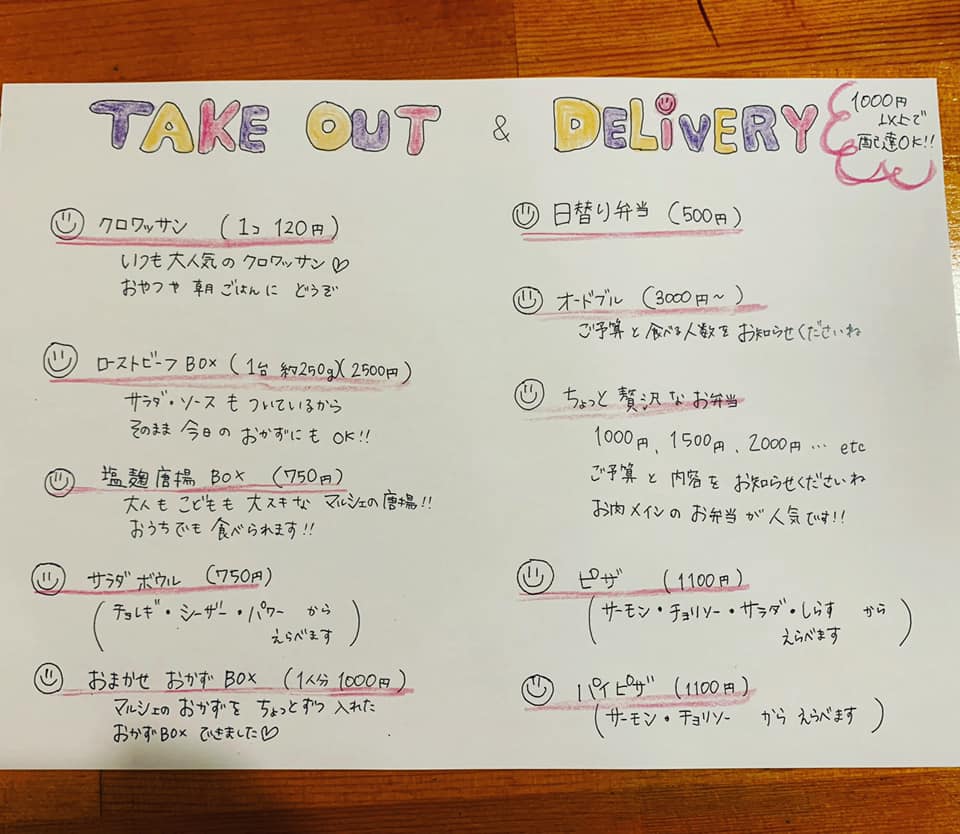 TAKE OUT & DELIVERY
1000円
以上で
配達OK!!
クロワッサン (1コ 120円)
いつも大人気の クロワッサン♡
おやつや 朝ごはんに どうぞ
ローストビーフ BOX (1台 約250g)(2500円)
サラダ・ソース も ついているから
そのまま 今日の おかずにも OK!!
塩麹唐揚 BOX (750円)
大人も こどもも 大スキな マルシェの唐揚!!
おうちでも 食べられます!!
サラダボウル (750円)
(チョレギ・シーザー・パワー から
えらべます)
おまかせ おかず BOX (1人分 1000円)
マルシェの おかずを ちょっとずつ 入れた
おかずBOX できました♡
日替り弁当 (500円)
オードブル (3000円〜)
ご予算 と 食べる人数を お知らせくださいね
ちょっと 贅沢な お弁当
1000円、1500円、2000円… etc
ご予算 と 内容を お知らせくださいね
お肉メインの お弁当が 人気です!!
ピザ (1100円)
(サーモン・チョリソー・サラダ・しらす から
えらべます)
パイピザ (1100円)
(サーモン・チョリソー から えらべます)